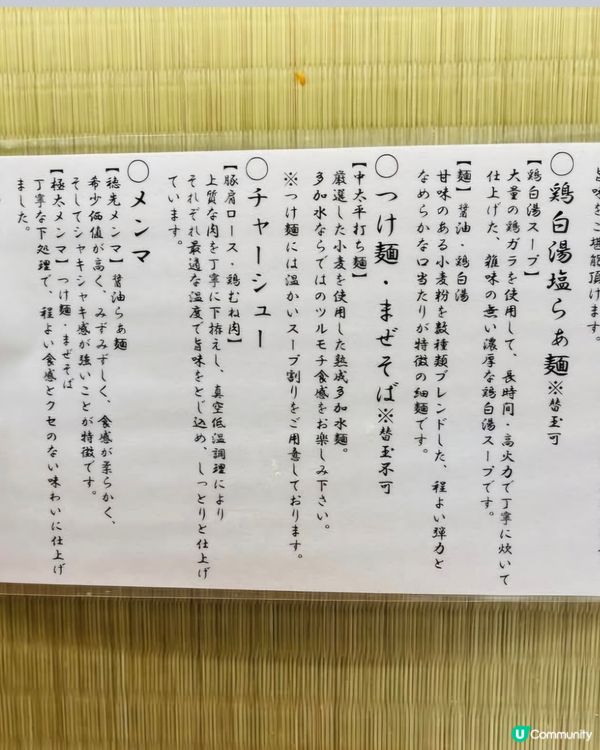 旨味をご堪能頂けます。
○鶏白湯塩らぁ麺※替玉可
【鶏白湯スープ】
大量の鶏ガラを使用して、長時間・高火力で丁寧に炊いて
仕上げた、雑味の無い濃厚な鶏白湯スープです。
【麺】醤油・鶏白湯
甘味のある小麦粉を数種類ブレンドした、程よい弾力と
なめらかな口当たりが特徴の細麺です。
○つけ麺・まぜそば※替玉不可
【中太平打ち麺】
厳選した小麦を使用した熟成多加水麺。
多加水ならではのツルモチ食感をお楽しみ下さい。
※つけ麺には温かいスープ割りをご用意しております。
○チャーシュー
【豚肩ロース・鶏むね肉】
上質な肉を丁寧に下拵えし、真空低温調理により
それぞれ最適な温度で旨味をとじ込め、しっとりと仕上げ
ています。
○メンマ
【穂先メンマ】醤油らぁ麺
希少価値が高く、みずみずしく、食感が柔らかく、
そしてシャキシャキ感が強いことが特徴です。
【極太メンマ】つけ麺・まぜそば
丁寧な下処理で、程よい食感とクセのない味わいに仕上げ
ました。
U Community